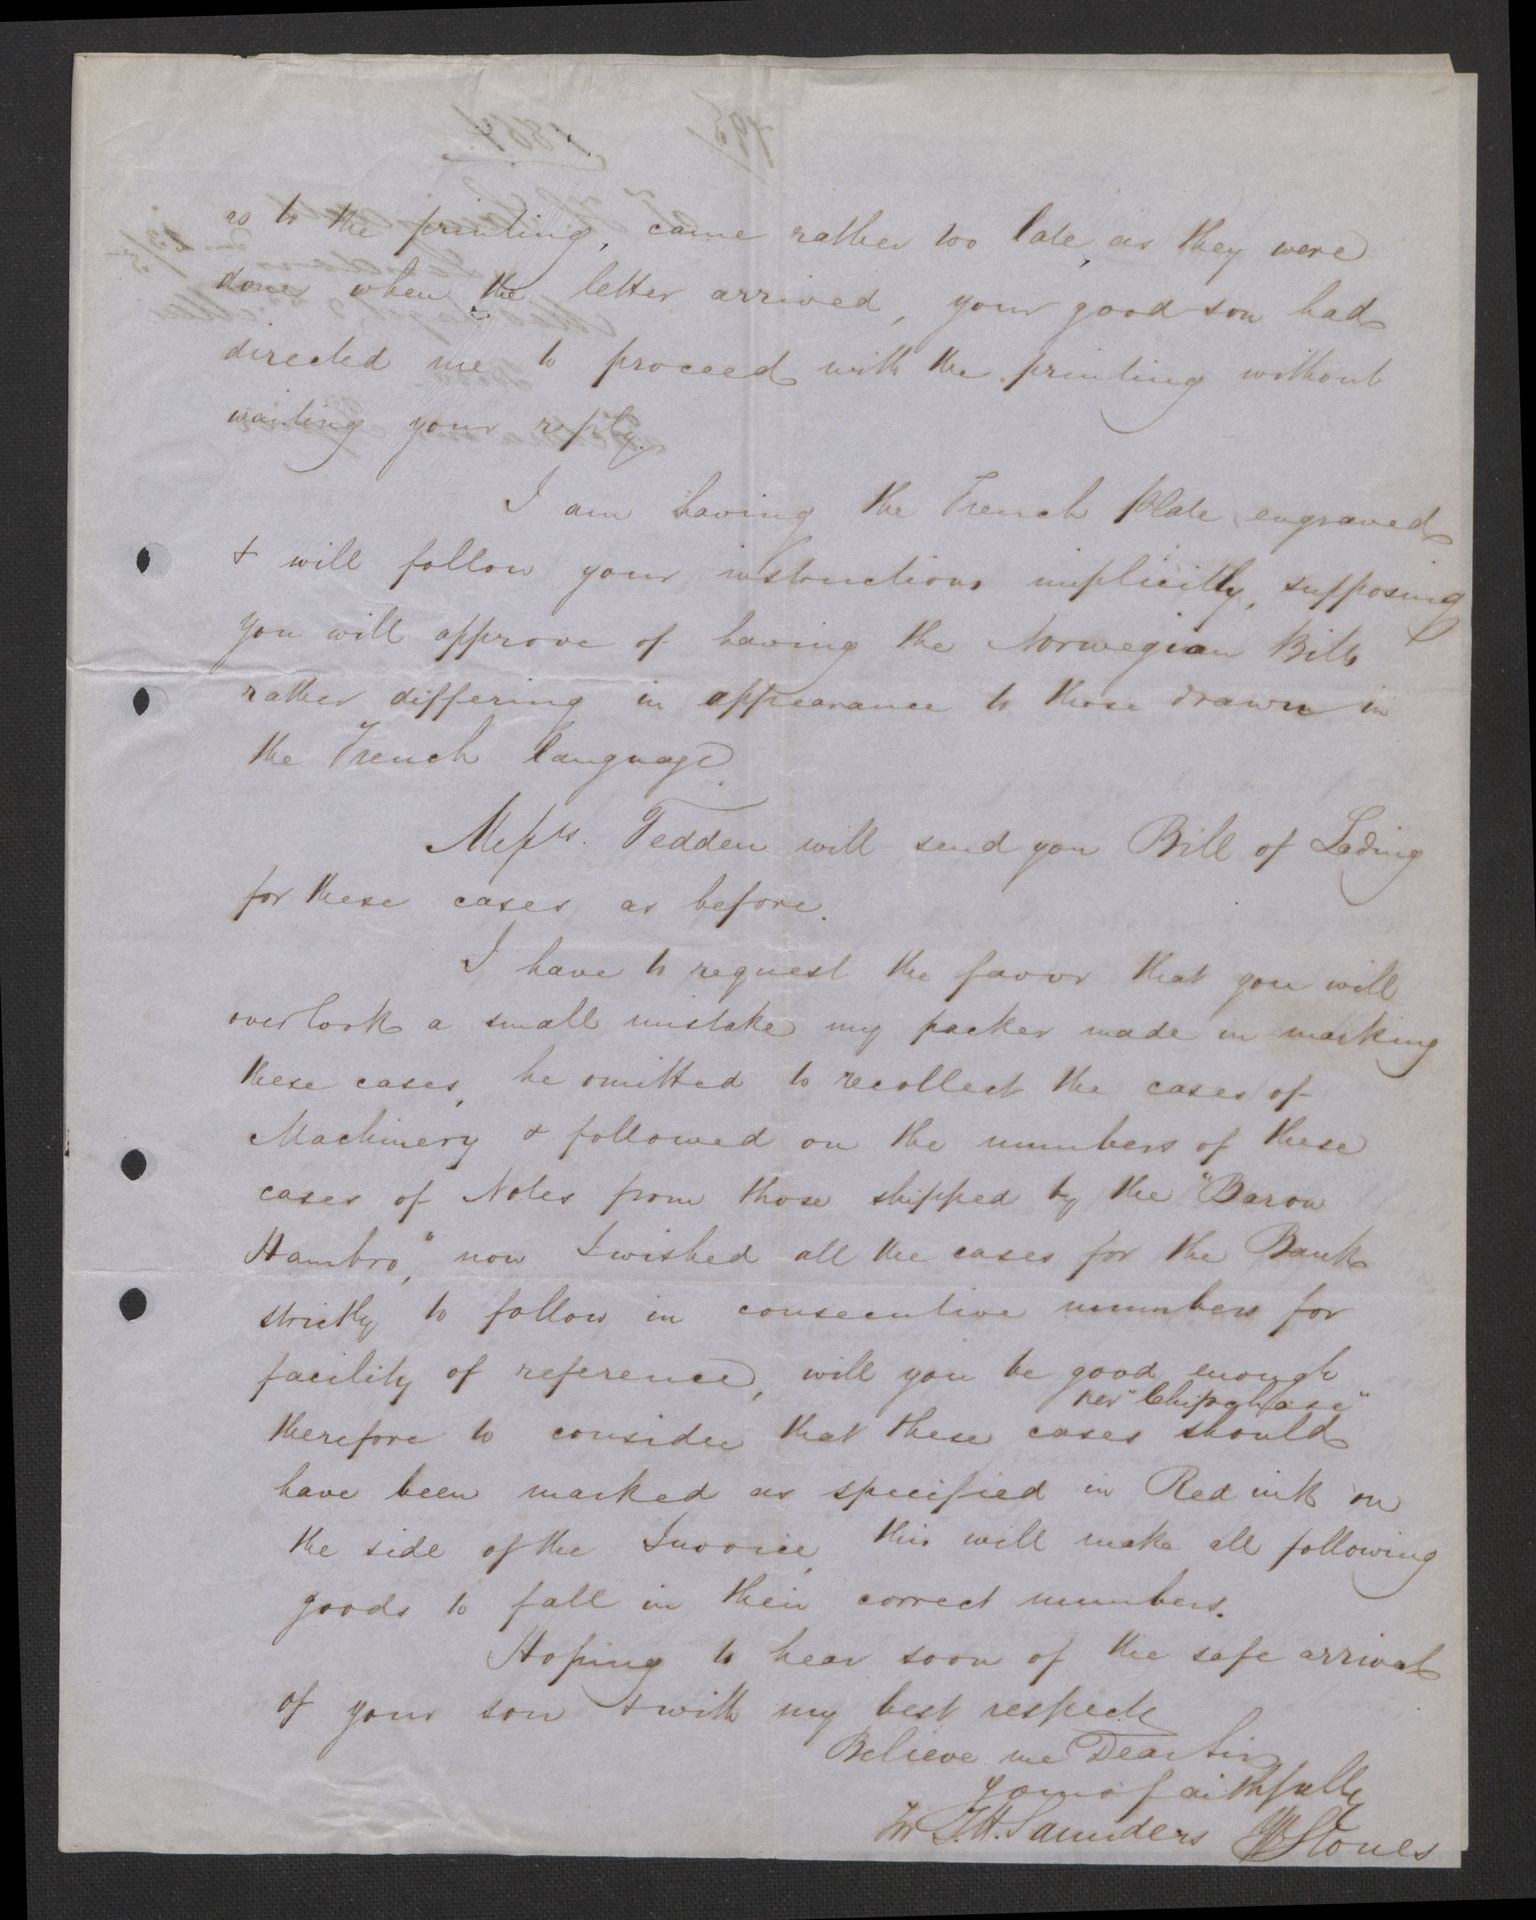 as to the printing, came rather too late, as they were
done when the letter arrived, your good son had
directed me to proceed with the printing without
waiting your reply.
I am having the French Plate engraved
& will follow your instructions implicitly, supposing
you will approve of having the Norwegian Bills
rather differing in appearance to those drawn in
the French language.
Messrs. Tedden will send you Bill of Lading
for these cases as before.
I have to request the favor that you will
overlook a small mistake my packer made in marking
these cases, he omitted to recollect the cases of
Machinery & followed on the numbers of these
cases of Notes from those shipped by the "Baron
Hambro," now I wished all the cases for the Bank
strictly to follow in consecutive numbers for
facility of reference, will you be good enough
per "Chipchase"
therefore to consider that these cases should
have been marked as specified in Red ink on
the side of the Invoice, this will make all following
goods to fall in their correct numbers.
Hoping to hear soon of the safe arrival
of your son & with my best respects
Believe me Dear Sir
yours faithfully
for T.H. Saunders Stones